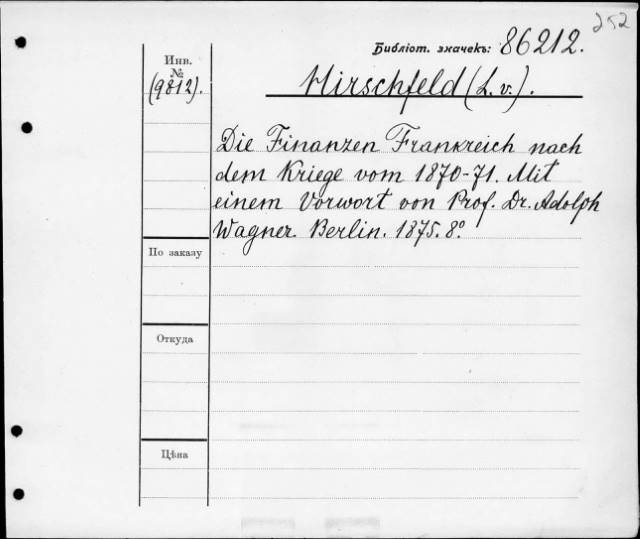 252
Библіот. значекъ: 86212.
Инв.
№
(9812).
Hirschfeld (L. v.).
Die Finanzen Frankreich nach
dem Kriege vom 1870-71. Mit
einem Vorwort von Prof. Dr. Adolph
Wagner. Berlin. 1875. 8°
По заказу
Откуда
Цѣна